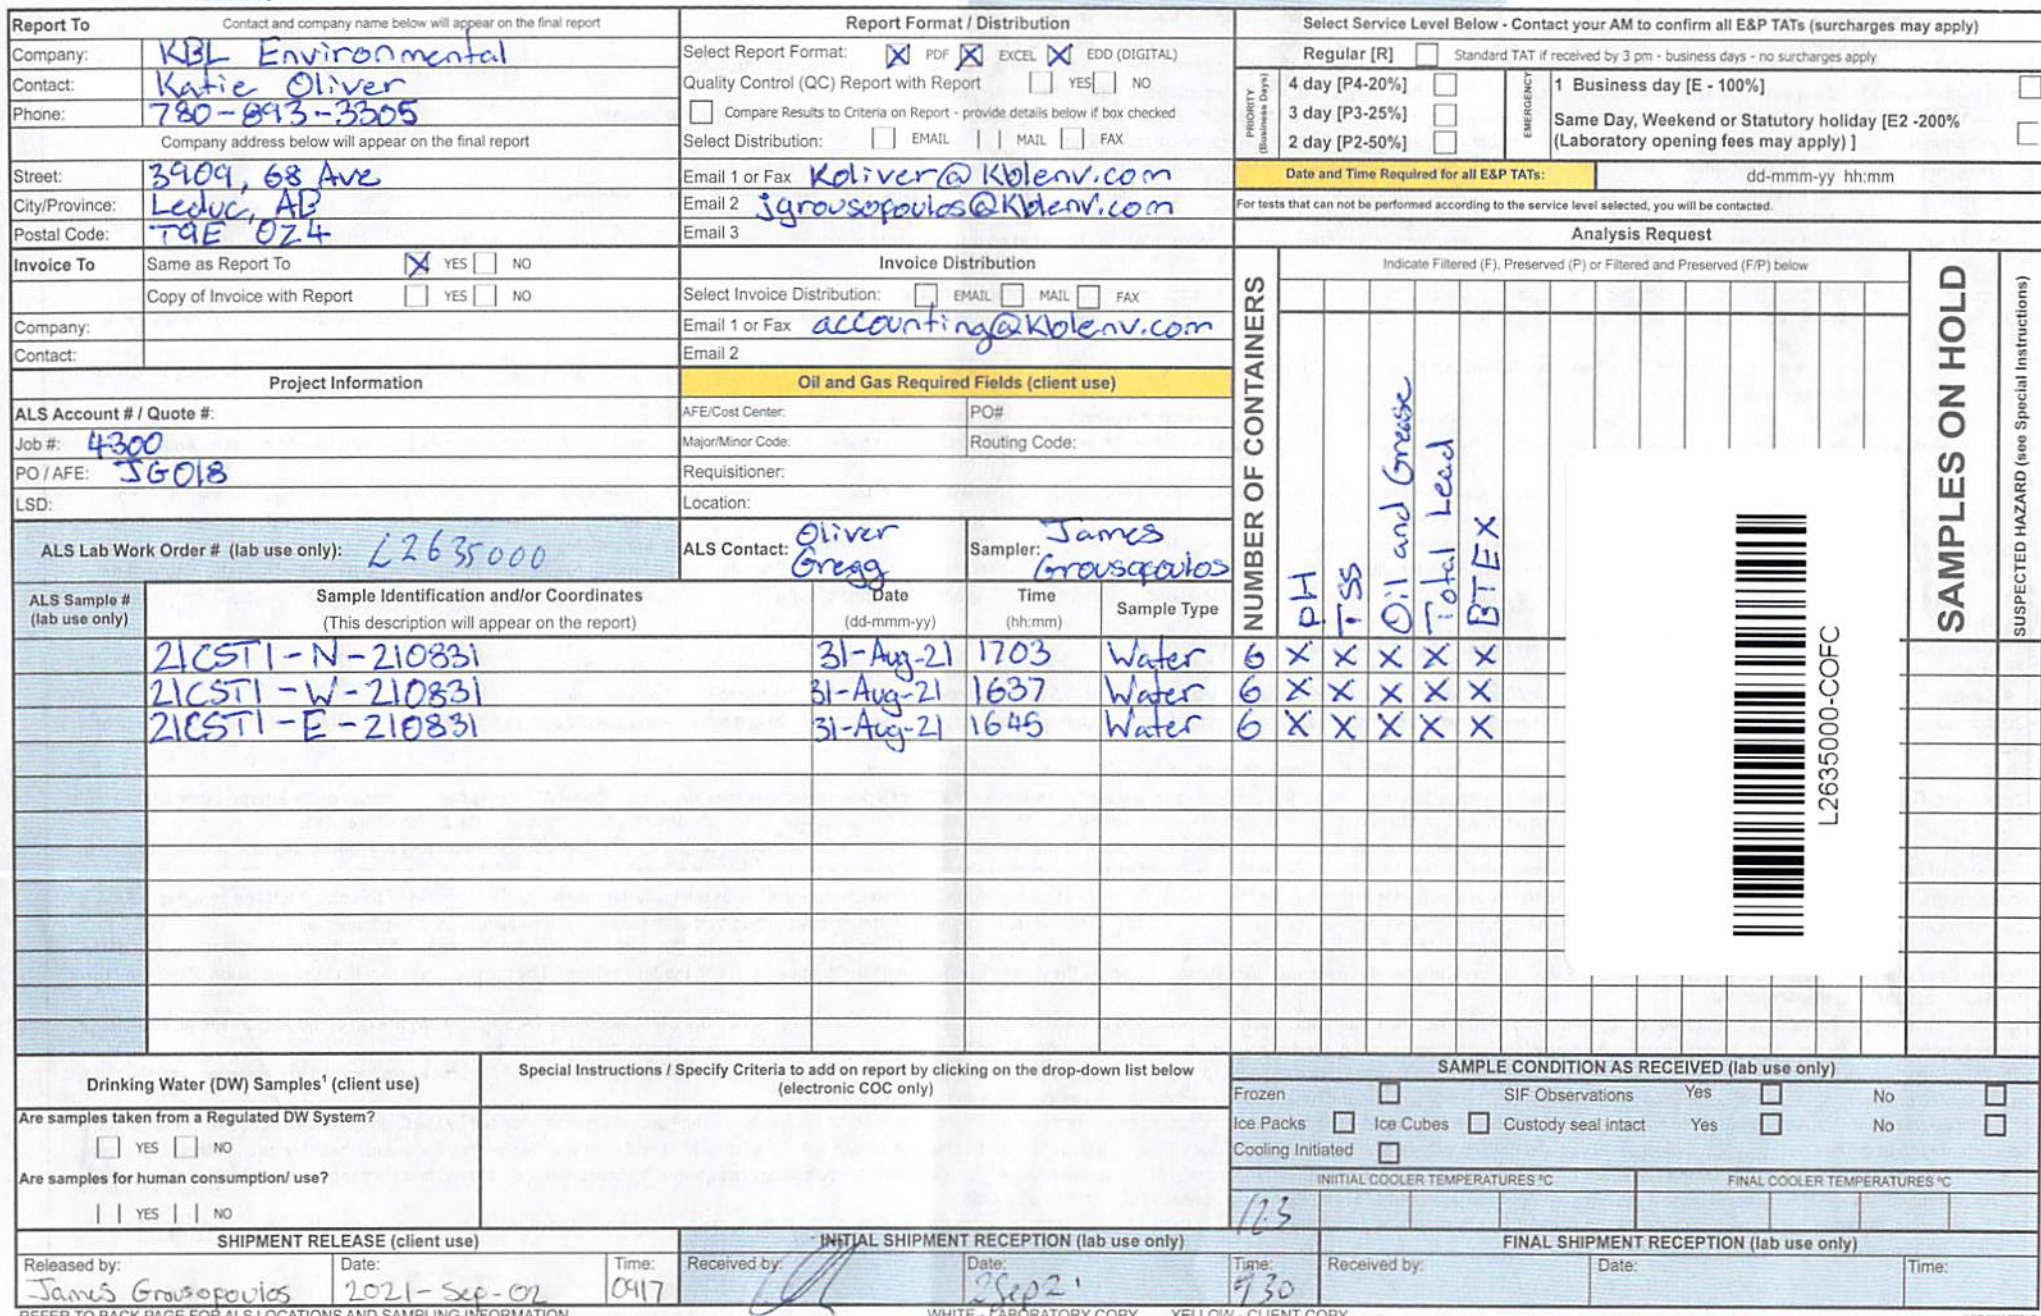 Report To Contact and company name below will appear on the final report
Company: KBL Environmental
Contact: Katie Oliver
Phone: 780-893-3305
Company address below will appear on the final report
Street: 3909, 68 Ave
City/Province: Leduc, AB
Postal Code: T9E 0Z4
Invoice To Same as Report To X YES NO
Copy of Invoice with Report YES NO
Company:
Contact:
Project Information
ALS Account # / Quote #:
Job #: 4300
PO / AFE: JG018
LSD:
ALS Lab Work Order # (lab use only): L2635000
Report Format / Distribution
Select Report Format: X PDF X EXCEL X EDD (DIGITAL)
Quality Control (QC) Report with Report YES NO
Compare Results to Criteria on Report - provide details below if box checked
Select Distribution: EMAIL MAIL FAX
Email 1 or Fax Koliver@Kblenv.com
Email 2 jgrousopoulos@Kblenv.com
Email 3
Invoice Distribution
Select Invoice Distribution: EMAIL MAIL FAX
Email 1 or Fax accounting@Kblenv.com
Email 2
Oil and Gas Required Fields (client use)
AFE/Cost Center: PO#
Major/Minor Code: Routing Code:
Requisitioner:
Location:
ALS Contact: Oliver Gregg Sampler: James Grousopoulos
Select Service Level Below - Contact your AM to confirm all E&P TATs (surcharges may apply)
Regular [R] Standard TAT if received by 3 pm - business days - no surcharges apply
PRIORITY (Business Days)
4 day [P4-20%]
3 day [P3-25%]
2 day [P2-50%]
EMERGENCY
1 Business day [E - 100%]
Same Day, Weekend or Statutory holiday [E2 -200%
(Laboratory opening fees may apply) ]
Date and Time Required for all E&P TATs: dd-mmm-yy hh:mm
For tests that can not be performed according to the service level selected, you will be contacted.
Analysis Request
Indicate Filtered (F), Preserved (P) or Filtered and Preserved (F/P) below
NUMBER OF CONTAINERS
pH
TSS
Oil and Grease
Total Lead
BTEX
SAMPLES ON HOLD
SUSPECTED HAZARD (see Special Instructions)
L2635000-COFC
ALS Sample # (lab use only) Sample Identification and/or Coordinates (This description will appear on the report) Date (dd-mmm-yy) Time (hh:mm) Sample Type
21CST1-N-210831 31-Aug-21 1703 Water 6 X X X X X
21CST1-W-210831 31-Aug-21 1637 Water 6 X X X X X
21CST1-E-210831 31-Aug-21 1645 Water 6 X X X X X
Drinking Water (DW) Samples¹ (client use)
Are samples taken from a Regulated DW System?
YES NO
Are samples for human consumption/ use?
YES NO
Special Instructions / Specify Criteria to add on report by clicking on the drop-down list below
(electronic COC only)
SAMPLE CONDITION AS RECEIVED (lab use only)
Frozen SIF Observations Yes No
Ice Packs Ice Cubes Custody seal intact Yes No
Cooling Initiated
INIITIAL COOLER TEMPERATURES ºC FINAL COOLER TEMPERATURES ºC
12.3
SHIPMENT RELEASE (client use)
Released by: James Grousopoulos Date: 2021-Sep-02 Time: 0917
INITIAL SHIPMENT RECEPTION (lab use only)
Received by: Date: 2Sep21 Time: 930
FINAL SHIPMENT RECEPTION (lab use only)
Received by: Date: Time:
REFER TO BACK PAGE FOR ALS LOCATIONS AND SAMPLING INFORMATION WHITE - LABORATORY COPY YELLOW - CLIENT COPY